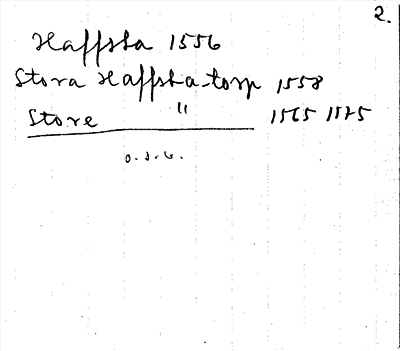 2.
Haffsta 1556
Stora Haffsta torp 1558
Store " 1565 1575
o.s.v.